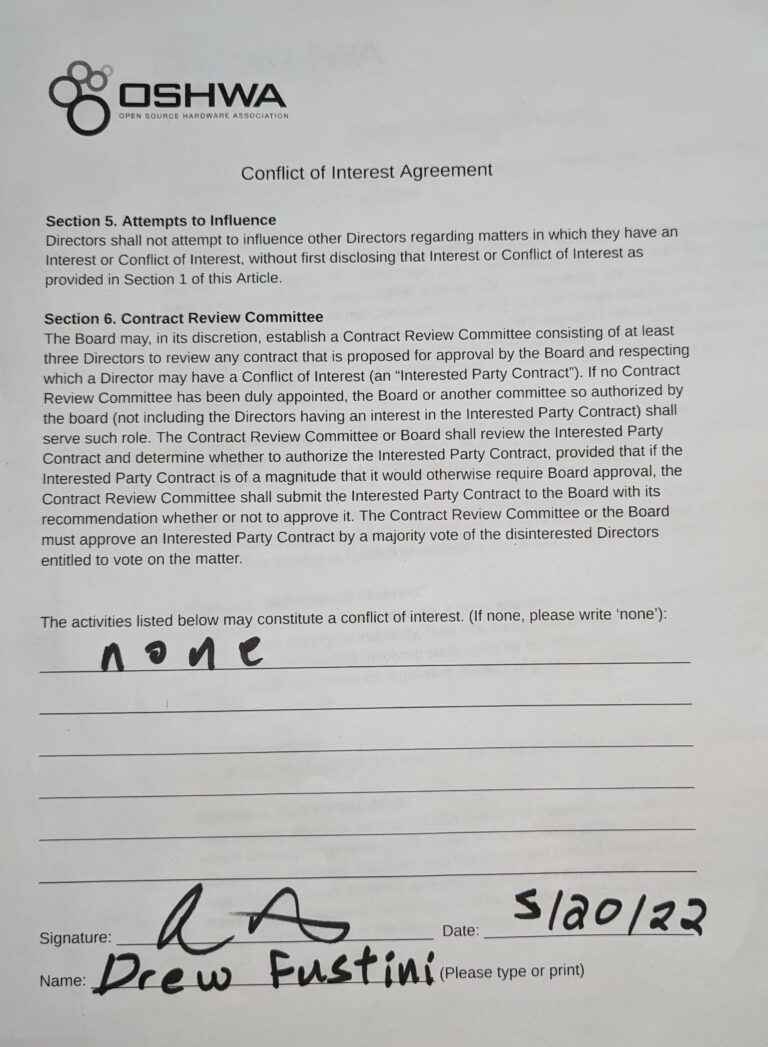 OSHWA
OPEN SOURCE HARDWARE ASSOCIATION
Conflict of Interest Agreement
Section 5. Attempts to Influence
Directors shall not attempt to influence other Directors regarding matters in which they have an
Interest or Conflict of Interest, without first disclosing that Interest or Conflict of Interest as
provided in Section 1 of this Article.
Section 6. Contract Review Committee
The Board may, in its discretion, establish a Contract Review Committee consisting of at least
three Directors to review any contract that is proposed for approval by the Board and respecting
which a Director may have a Conflict of Interest (an “Interested Party Contract”). If no Contract
Review Committee has been duly appointed, the Board or another committee so authorized by
the board (not including the Directors having an interest in the Interested Party Contract) shall
serve such role. The Contract Review Committee or Board shall review the Interested Party
Contract and determine whether to authorize the Interested Party Contract, provided that if the
Interested Party Contract is of a magnitude that it would otherwise require Board approval, the
Contract Review Committee shall submit the Interested Party Contract to the Board with its
recommendation whether or not to approve it. The Contract Review Committee or the Board
must approve an Interested Party Contract by a majority vote of the disinterested Directors
entitled to vote on the matter.
The activities listed below may constitute a conflict of interest. (If none, please write ‘none’):
none
Signature: Date: 5/20/22
Name: Drew Fustini (Please type or print)